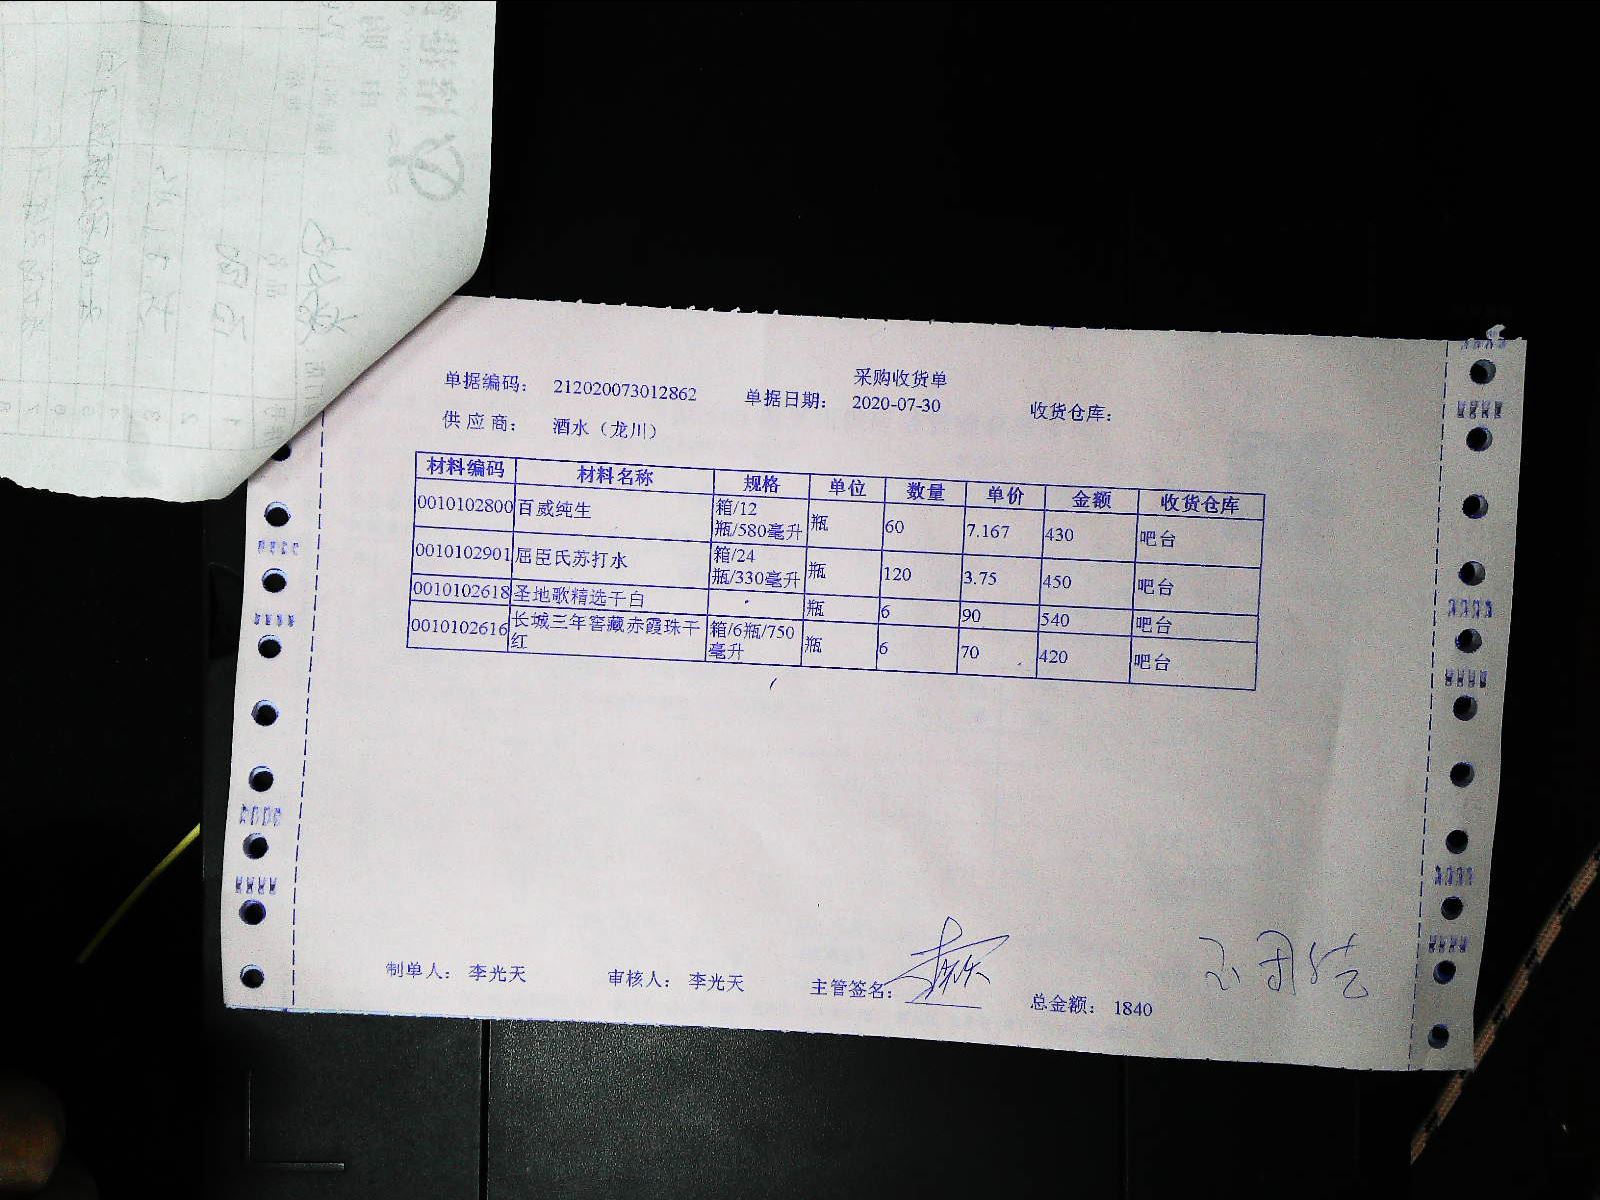 采购收货单
单据编码： 212020073012862 单据日期： 2020-07-30 收货仓库：
供 应 商： 酒水（龙川）
材料编码 材料名称 规格 单位 数量 单价 金额 收货仓库
0010102800 百威纯生 箱/12瓶/580毫升 瓶 60 7.167 430 吧台
0010102901 屈臣氏苏打水 箱/24瓶/330毫升 瓶 120 3.75 450 吧台
0010102618 圣地歌精选干白 瓶 6 90 540 吧台
0010102616 长城三年窖藏赤霞珠干红 箱/6瓶/750毫升 瓶 6 70 420 吧台
制单人： 李光天 审核人： 李光天 主管签名： 总金额： 1840